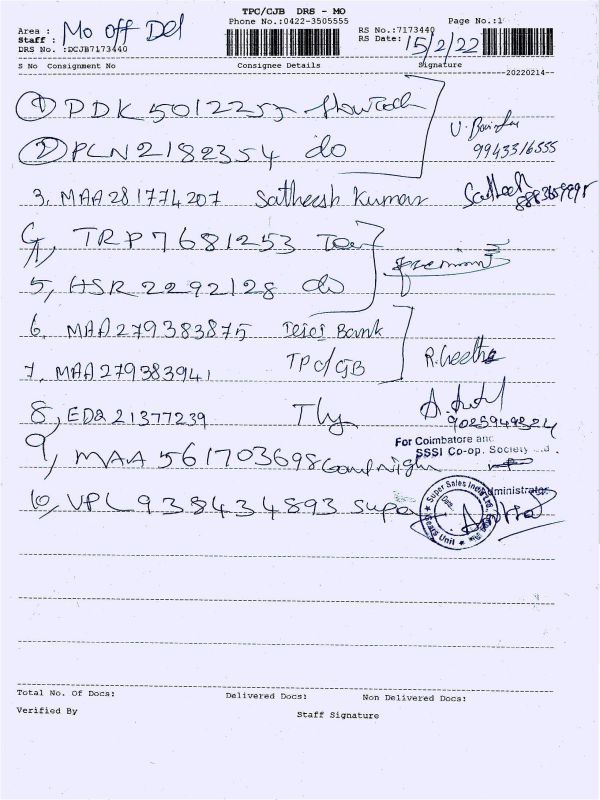 TPC/CJB DRS - MO
Phone No.:0422-3505555 Page No.:1
Area : Mo Off Del RS No.:7173440
Staff : RS Date: 15/2/22
DRS No. :DCJB7173440
S No Consignment No Consignee Details Signature
20220214
1 PDK 501225
2 PLN 2182354 do 9943316555
3, MAA 281774207 Satheesh Kumar Satheesh
4, TRP 7681253
5, HSR 2292128 do
6. MAA 279383875 Bank
7, MAA 279383941 TPC/CJB R. Geetha
8, EDA 21377239 Tly
For Coimbatore and
SSSI Co-op. Society
9, MAA 561703698
Administrator
10, VPL 938434893 Super
Super Sales India Ltd. Gears Unit
Total No. Of Docs: Delivered Docs: Non Delivered Docs:
Verified By Staff Signature